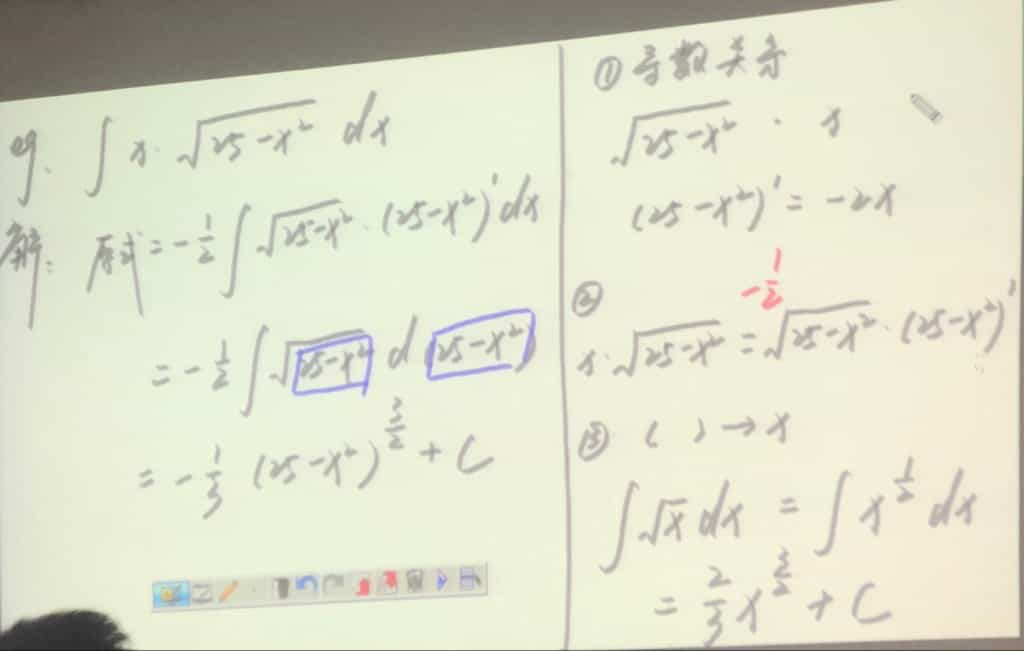 eg. ∫ x·√(25-x²) dx
解: 原式 = -1/2 ∫ √(25-x²)·(25-x²)' dx
= -1/2 ∫ √(25-x²) d(25-x²)
= -1/3 (25-x²)^(3/2) + C
① 导数关系
√(25-x²) · x
(25-x²)' = -2x
②
x·√(25-x²) = -1/2 √(25-x²)·(25-x²)'
③ ( ) → x
∫ √x dx = ∫ x^(1/2) dx
= 2/3 x^(3/2) + C